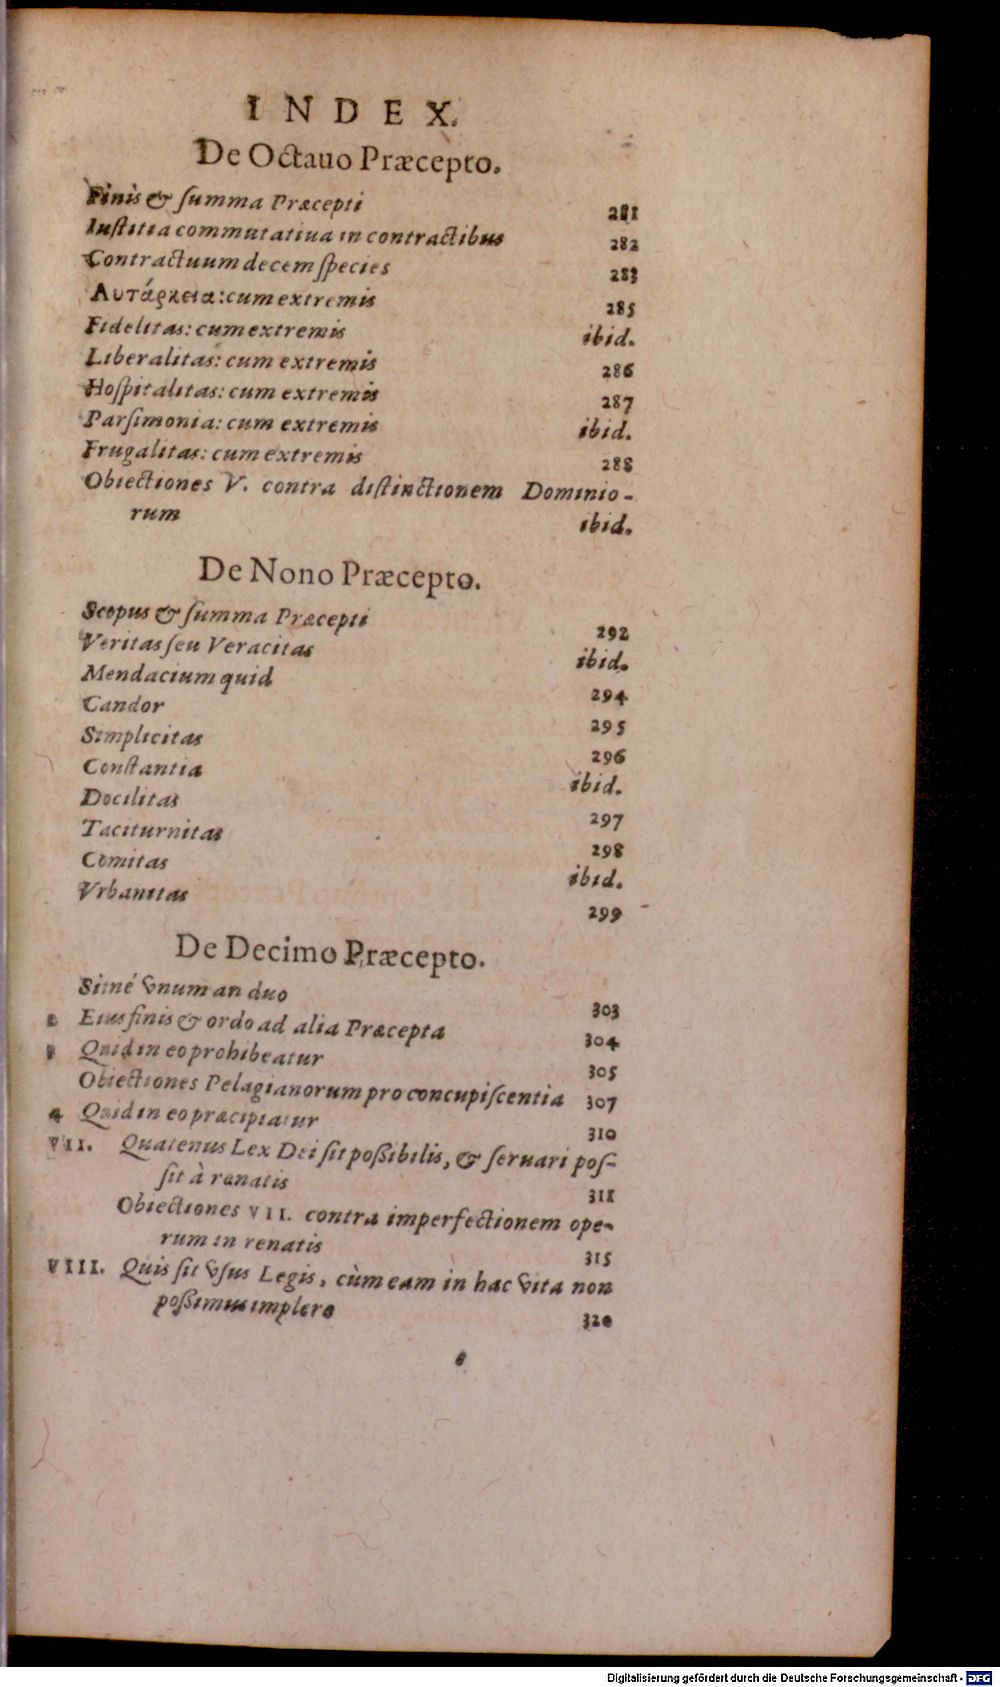 INDEX.
De Octauo Præcepto.
Finis & ſumma Præcepti 281
Iuſtitia commutatiua in contractibus 282
Contractuum decem ſpecies 283
Αυτάρκεια: cum extremis 285
Fidelitas: cum extremis ibid.
Liberalitas: cum extremis 286
Hoſpitalitas: cum extremis 287
Parſimonia: cum extremis ibid.
Frugalitas: cum extremis 288
Obiectiones V. contra diſtinctionem Dominio-
rum ibid.
De Nono Præcepto.
Scopus & ſumma Præcepti 292
Veritas ſeu Veracitas ibid.
Mendacium quid 294
Candor 295
Simplicitas 296
Conſtantia ibid.
Docilitas 297
Taciturnitas 298
Comitas ibid.
Vrbanitas 299
De Decimo Præcepto.
Sitné vnum an duo 303
2 Eius finis & ordo ad alia Præcepta 304
3 Quid in eo prohibeatur 305
Obiectiones Pelagianorum pro concupiſcentia 307
4 Quid in eo præcipiatur 310
VII. Quatenus Lex Dei ſit poßibilis, & ſeruari poſ-
ſit à renatis 311
Obiectiones VII. contra imperfectionem ope-
rum in renatis 315
VIII. Quis ſit vſus Legis, cùm eam in hac vita non
poßimus implere 320
Digitalisierung gefördert durch die Deutsche Forschungsgemeinschaft - DFG